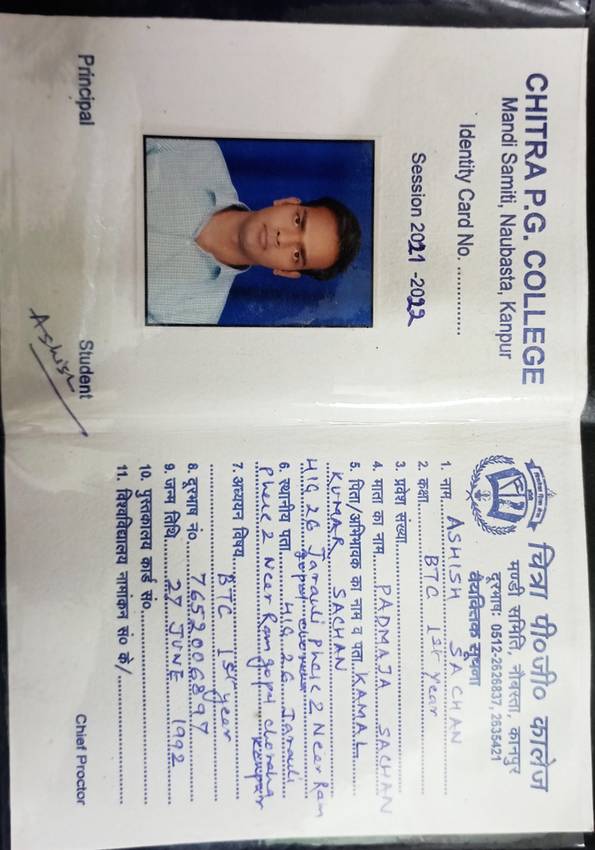 CHITRA P.G. COLLEGE
Mandi Samiti, Naubasta, Kanpur
Identity Card No. ..............
Session 2021 -2022
Principal
Student
Ashish
चित्रा पी०जी० कालेज
मण्डी समिति, नौबस्ता, कानपुर
दूरभाष: 0512-2626837, 2635421
वैयक्तिक सूचना
1. नाम ASHISH SACHAN
2. कक्षा BTC 1st year
3. प्रवेश संख्या
4. माता का नाम PADMAJA SACHAN
5. पिता/अभिभावक का नाम व पता KAMAL
KUMAR SACHAN
HIG 26 Jarauli Phase 2 Near Ram
gopal chauraha
6. स्थानीय पता HIG 26 Jarauli
Phase 2 Near Ram gopal choraha
Kanpur
7. अध्ययन विषय BTC 1st year
8. दूरभाष नं० 7652006897
9. जन्म तिथि 27 JUNE 1992
10. पुस्तकालय कार्ड सं०
11. विश्वविद्यालय नामांकन सं० के/
Chief Proctor